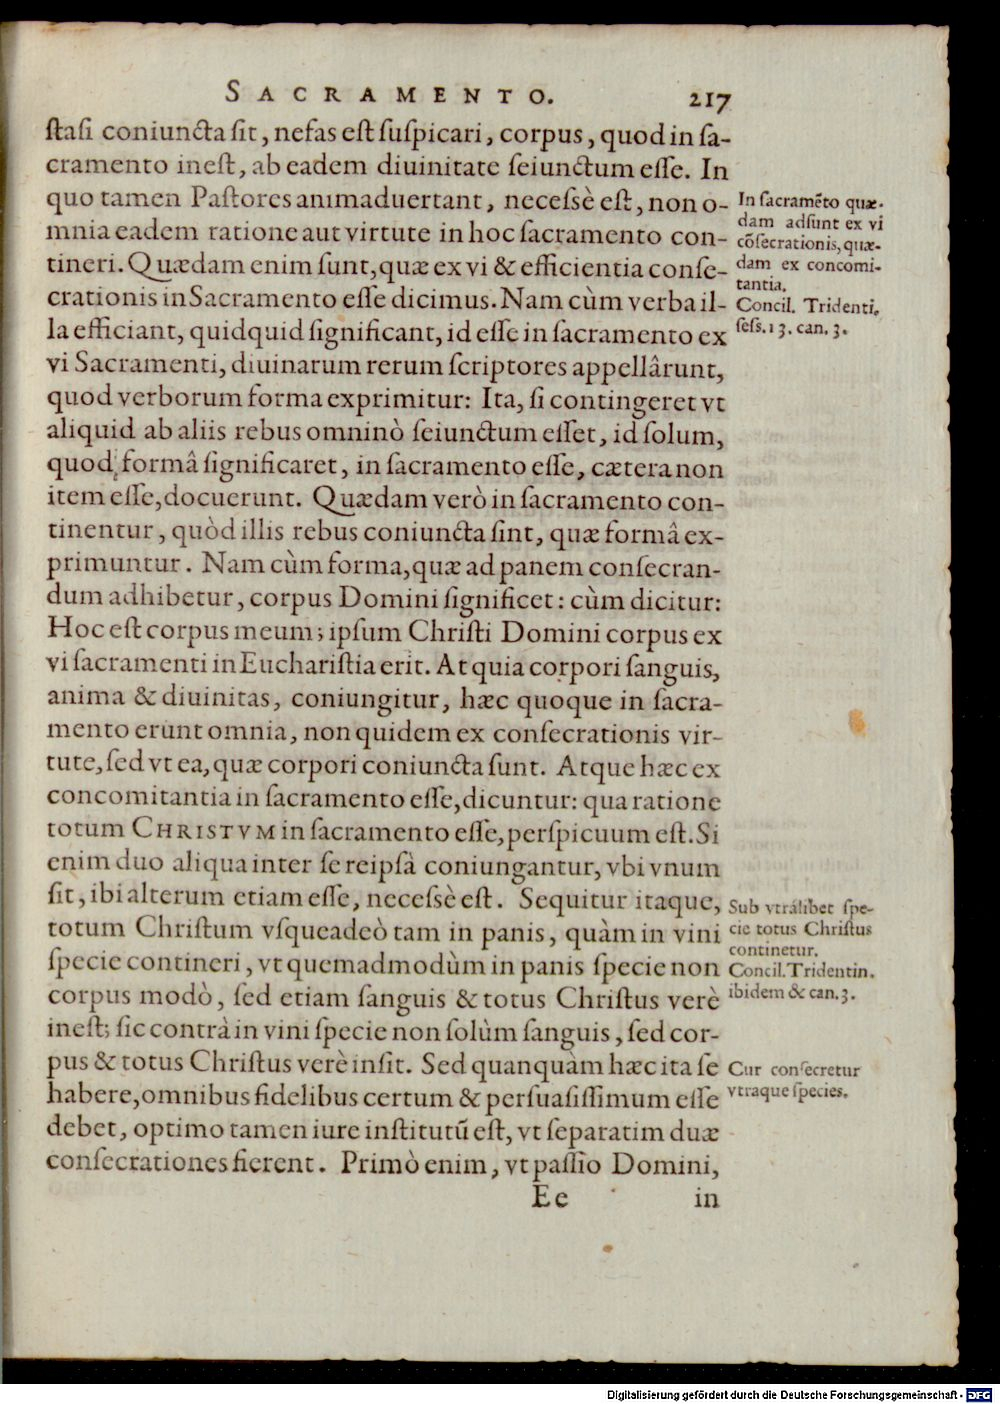 SACRAMENTO. 217
ſtaſi coniuncta ſit, nefas eſt ſuſpicari, corpus, quod in ſa-
cramento ineſt, ab eadem diuinitate ſeiunctum eſſe. In
quo tamen Paſtores animaduertant, neceſsè eſt, non o-
mnia eadem ratione aut virtute in hoc ſacramento con-
tineri. Quædam enim ſunt, quæ ex vi & efficientia conſe-
crationis in Sacramento eſſe dicimus. Nam cùm verba il-
la efficiant, quidquid ſignificant, id eſſe in ſacramento ex
vi Sacramenti, diuinarum rerum ſcriptores appellârunt,
quod verborum forma exprimitur: Ita, ſi contingeret vt
aliquid ab aliis rebus omninò ſeiunctum eſſet, id ſolum,
quod formâ ſignificaret, in ſacramento eſſe, cætera non
item eſſe, docuerunt. Quædam verò in ſacramento con-
tinentur, quòd illis rebus coniuncta ſint, quæ formâ ex-
primuntur. Nam cùm forma, quæ ad panem conſecran-
dum adhibetur, corpus Domini ſignificet: cùm dicitur:
Hoc eſt corpus meum; ipſum Chriſti Domini corpus ex
vi ſacramenti in Euchariſtia erit. At quia corpori ſanguis,
anima & diuinitas, coniungitur, hæc quoque in ſacra-
mento erunt omnia, non quidem ex conſecrationis vir-
tute, ſed vt ea, quæ corpori coniuncta ſunt. Atque hæc ex
concomitantia in ſacramento eſſe, dicuntur: qua ratione
totum CHRISTVM in ſacramento eſſe, perſpicuum eſt. Si
enim duo aliqua inter ſe reipſâ coniungantur, vbi vnum
ſit, ibi alterum etiam eſſe, neceſsè eſt. Sequitur itaque,
totum Chriſtum vſqueadeò tam in panis, quàm in vini
ſpecie contineri, vt quemadmodùm in panis ſpecie non
corpus modò, ſed etiam ſanguis & totus Chriſtus verè
ineſt; ſic contrà in vini ſpecie non ſolùm ſanguis, ſed cor-
pus & totus Chriſtus verè inſit. Sed quanquàm hæc ita ſe
habere, omnibus fidelibus certum & perſuaſiſſimum eſſe
debet, optimo tamen iure inſtitutū eſt, vt ſeparatim duæ
conſecrationes fierent. Primò enim, vt paſſio Domini,
Ee in
In ſacramēto quæ-
dam adſunt ex vi
cōſecrationis, quæ-
dam ex concomi-
tantia.
Concil. Tridenti.
ſeſs. 13. can. 3.
Sub vtrálibet ſpe-
cie totus Chriſtus
continetur.
Concil. Tridentin.
ibidem & can. 3.
Cur conſecretur
vtraque ſpecies.
Digitalisierung gefördert durch die Deutsche Forschungsgemeinschaft - DFG